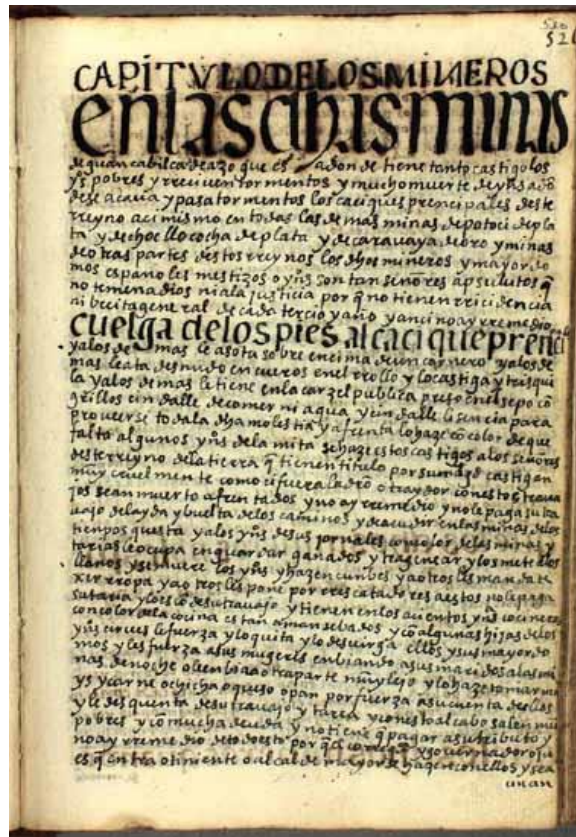 520
52
CAPÍTVLO DE LOS MINEROS
en las dihas minas
de guancabilca de azoque es adonde tiene tanto castigo los
yos pobres y rreciuen tormentos y mucho muerte de yos adō
de se acaua y pasa tormentos los caciques prencipales deste
rreyno aci mismo en todas las demas minas de potoci de pla
ta y de chocllococha de plata y de carauaya de oro y minas
de otras partes destos rreynos los dhos mineros y mayordo
mos españoles mestizos o yos son tan señores apsulutos q̄
no temen a dios ni a la justicia porq̄ no tienen rricidencia
ni becita general de cada tercio y año y anci no ay rremedio
cuelga de los pies al cacique prenci
y a los demas le asota sobre encima de un carnero y a los de
mas le ata desnudo en cueros en el rrollo y lo castiga y trisqui
la y a los demas le tiene en la carzel publica preso en el sepo cō
grillos cin dalle de comer ni agua y cin dalle lisencia para
proueerse toda la dha molestia y afrenta lo haze cō color de que
falta algunos yos de la mita se haze estos castigos a los señores
deste rreyno de la tierra q̄ tienen titulo por su magd castigan
muy cruelmente como ci fuera ladrō o traydor cō estos trava
jos se an muerto afrentados y no ay rremedio y no le paga su tra
uajo de la yda y buelta de los caminos y de acudir en las minas de los
tienpos questa y a los yos de sus jornales con color de las minas y
le ocupa en guardar ganados y traginear y los mete a los
llanos y se muere los yos y hazen cunbes y a otros les manda te
xer rropa y a otros les pone por rrescatadores a estos no le paga
su trauajo y tienen en los aucentos yas cocineras
con color de la cocina estan amansebados y cō algunas hijas de los
yos le fuerza y lo quita y lo desuirga ellos y sus mayordo
mos y les fuerza a sus mugeres enbiando a sus maridos a las mi
nas de noche o le enbia a otra parte muy lejo y lo haze tomar ma
ys y carne o chicha o queso o pan por fuerza a su cuenta dellos
y le desquenta de su trauajo y tarea y con esto al cabo salen muy
pobres y cō mucha deuda y no tiene q̄ pagar a su tributo y
no ay rremedio de todo esto porq̄ el corregor y gouernador o ques
es q̄ entra o tiniente o alcalde mayor se haze con ellos y se a
unan